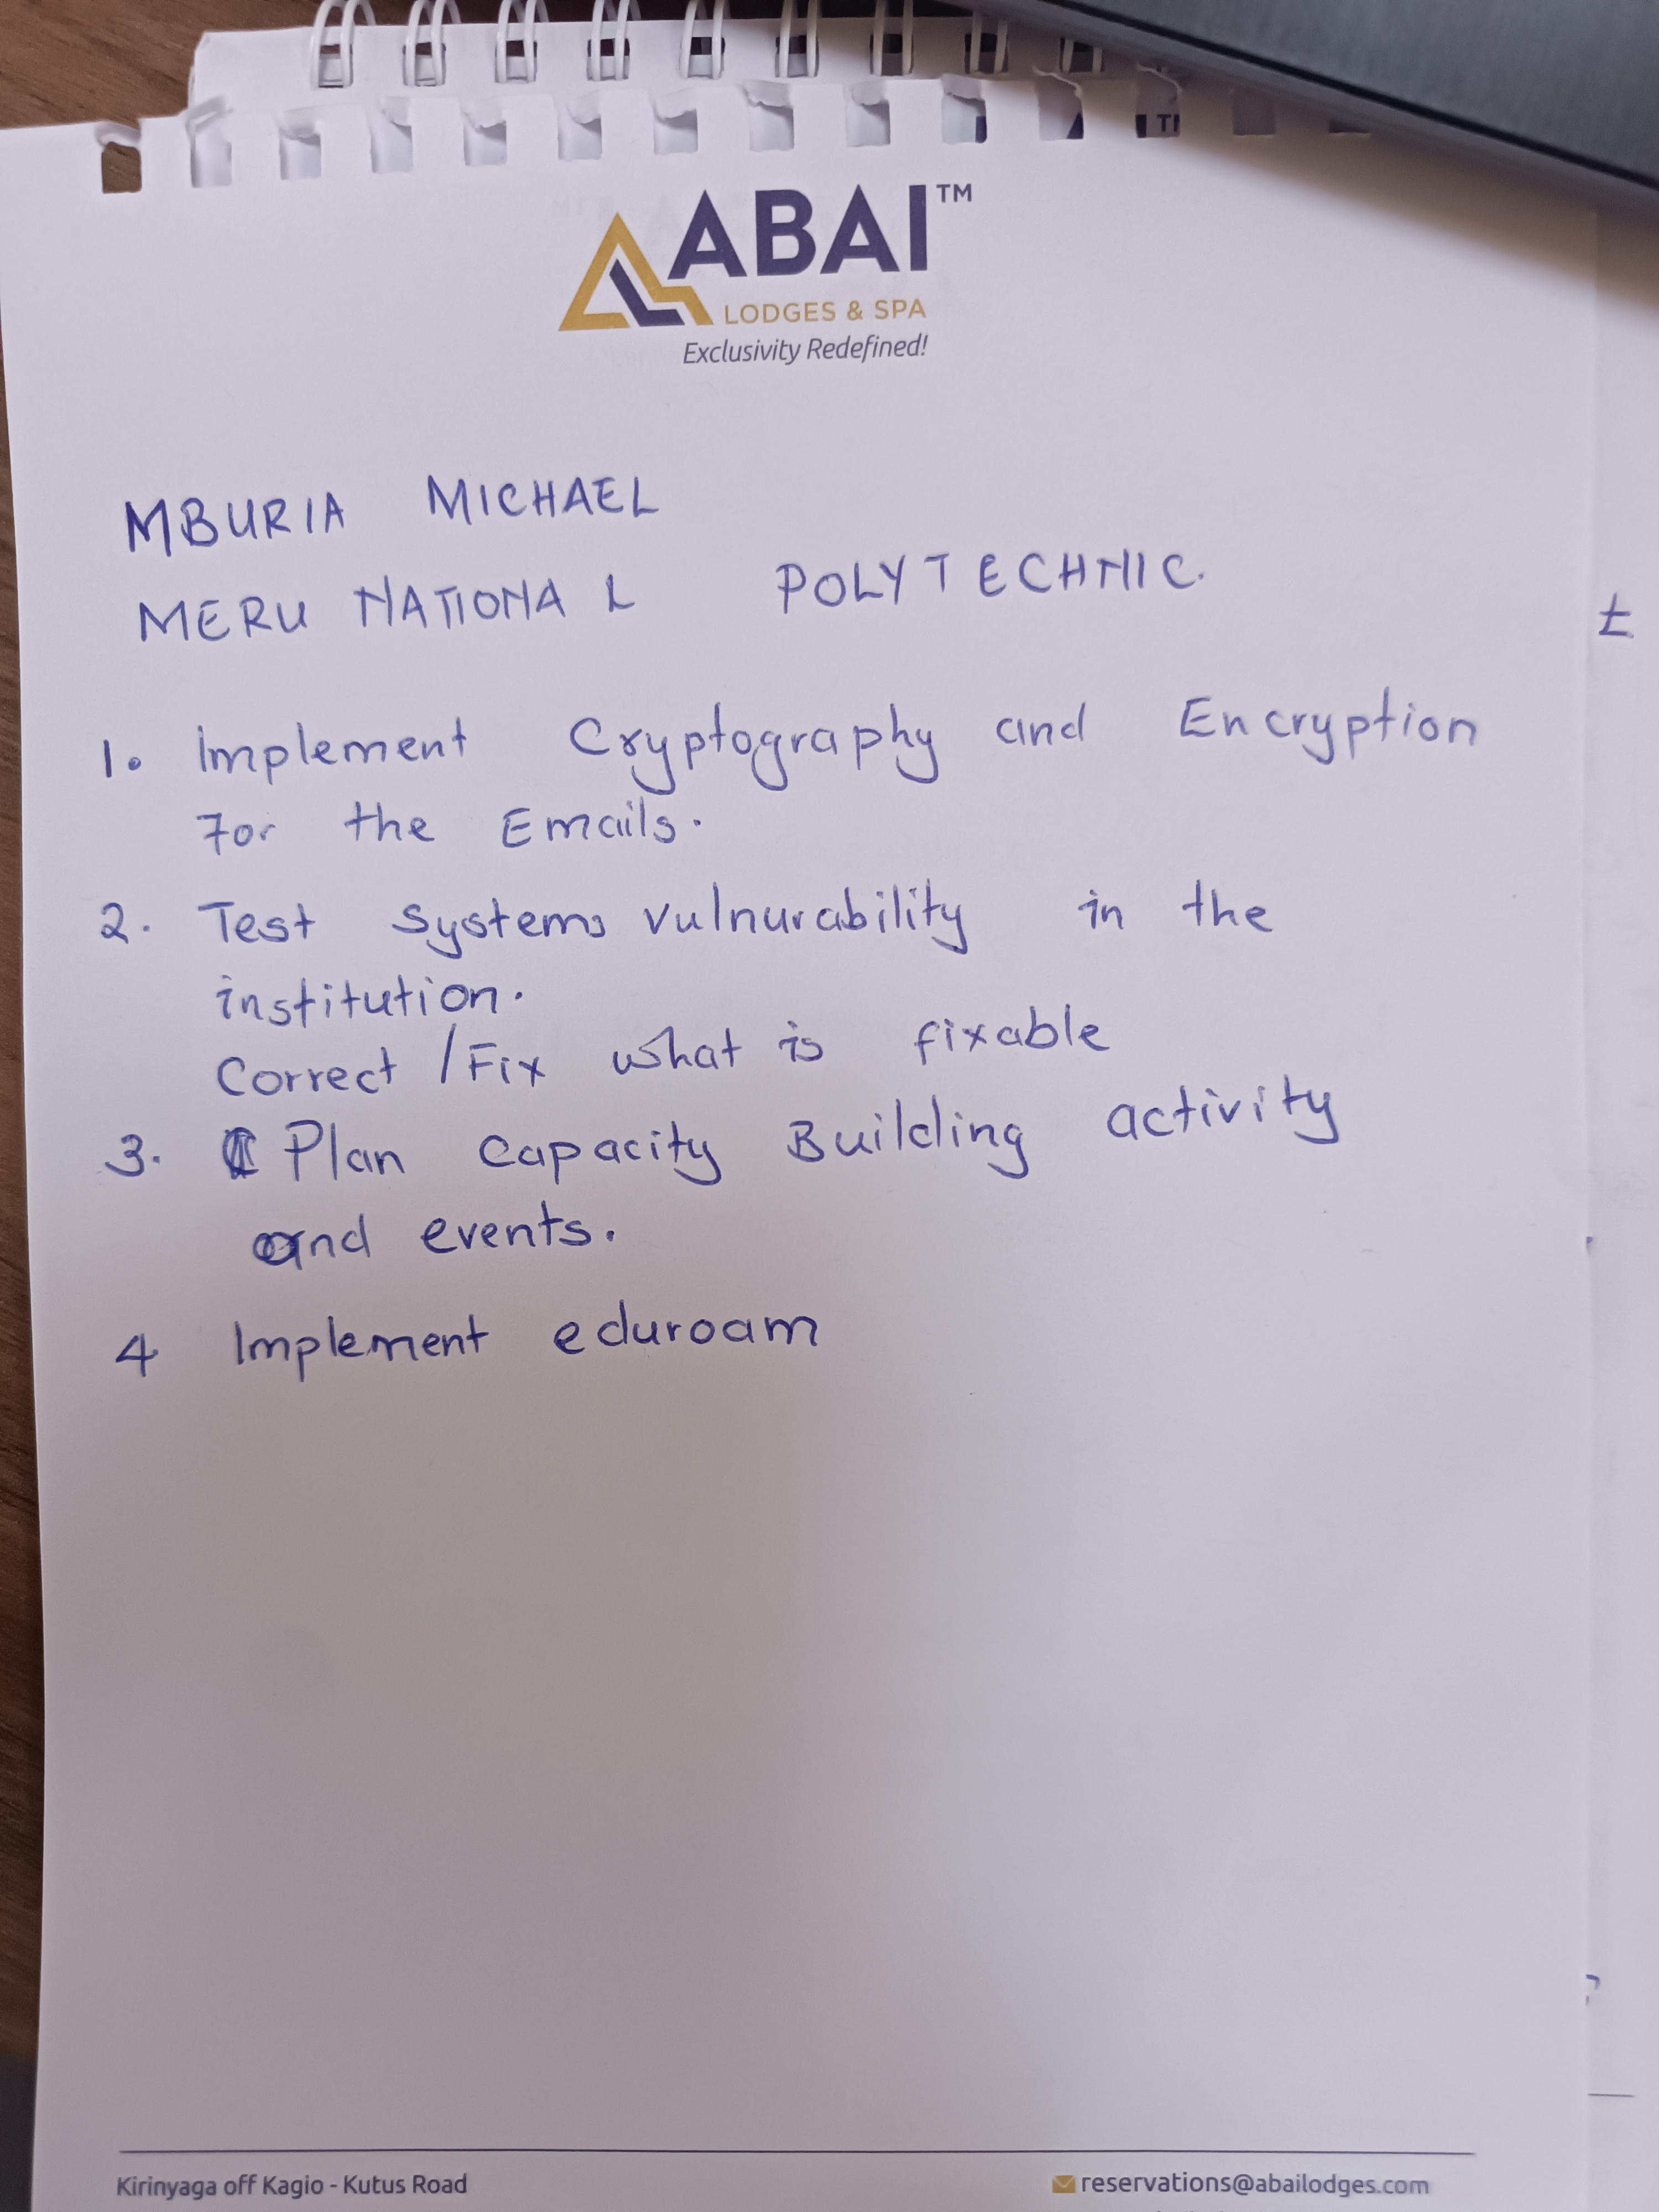 TI
ABAI™
LODGES & SPA
Exclusivity Redefined!
MBURIA MICHAEL
MERU NATIONAL POLYTECHNIC.
t
1. Implement Cryptography and Encryption
For the Emails.
2. Test systems vulnurability in the
institution.
Correct / Fix what is fixable
3. Plan Capacity Building activity
and events.
4 Implement eduroam
Kirinyaga off Kagio - Kutus Road
reservations@abailodges.com